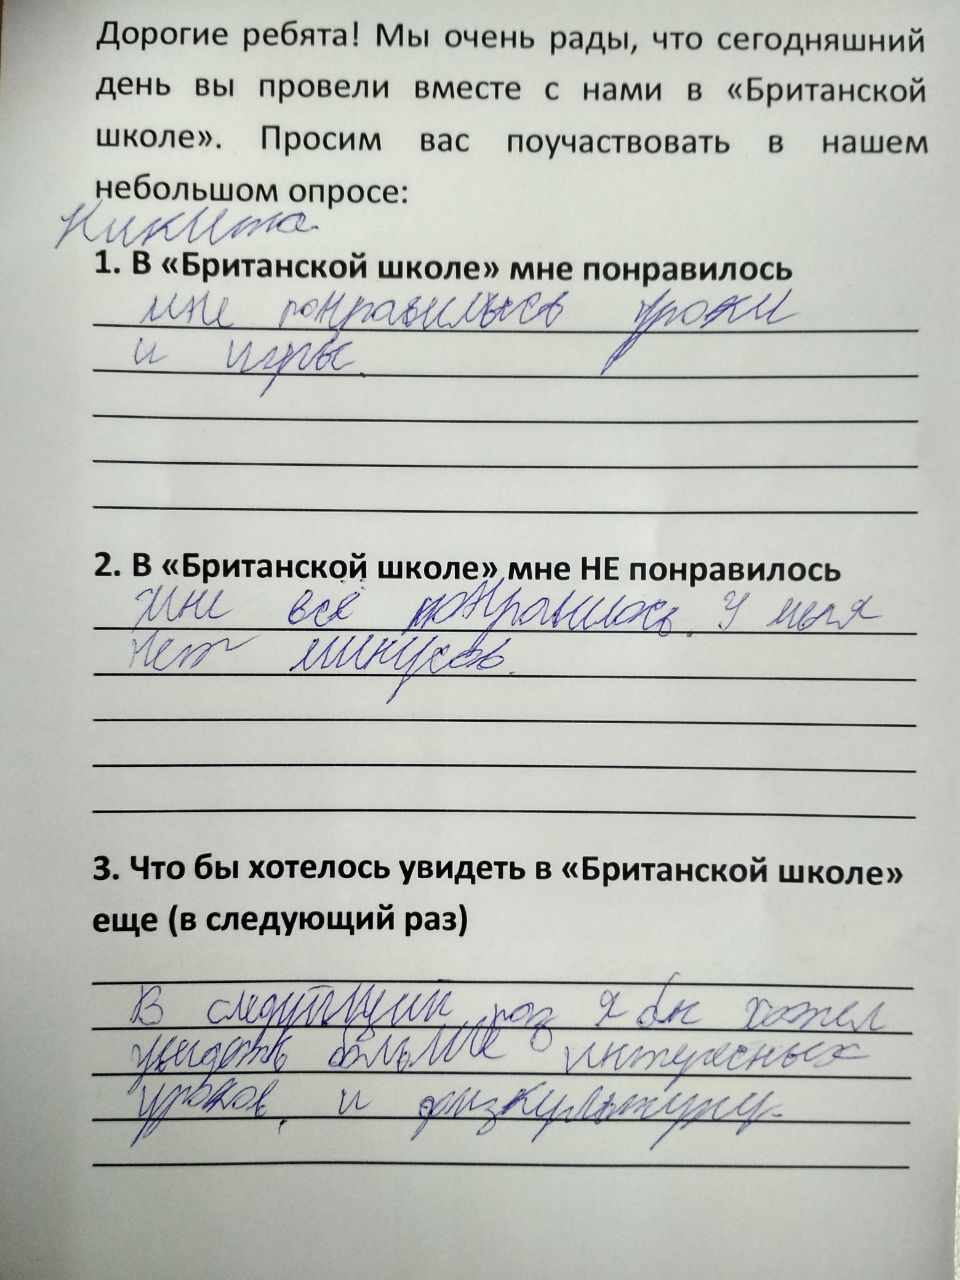 Дорогие ребята! Мы очень рады, что сегодняшний
день вы провели вместе с нами в «Британской
школе». Просим вас поучаствовать в нашем
небольшом опросе:
Никита.
1. В «Британской школе» мне понравилось
мне понравились уроки
и игры.
2. В «Британской школе» мне НЕ понравилось
мне всё понравилось. У меня
нет минусов.
3. Что бы хотелось увидеть в «Британской школе»
еще (в следующий раз)
В следующий раз я бы хотел
увидеть больше интересных
уроков. и физкультуру.